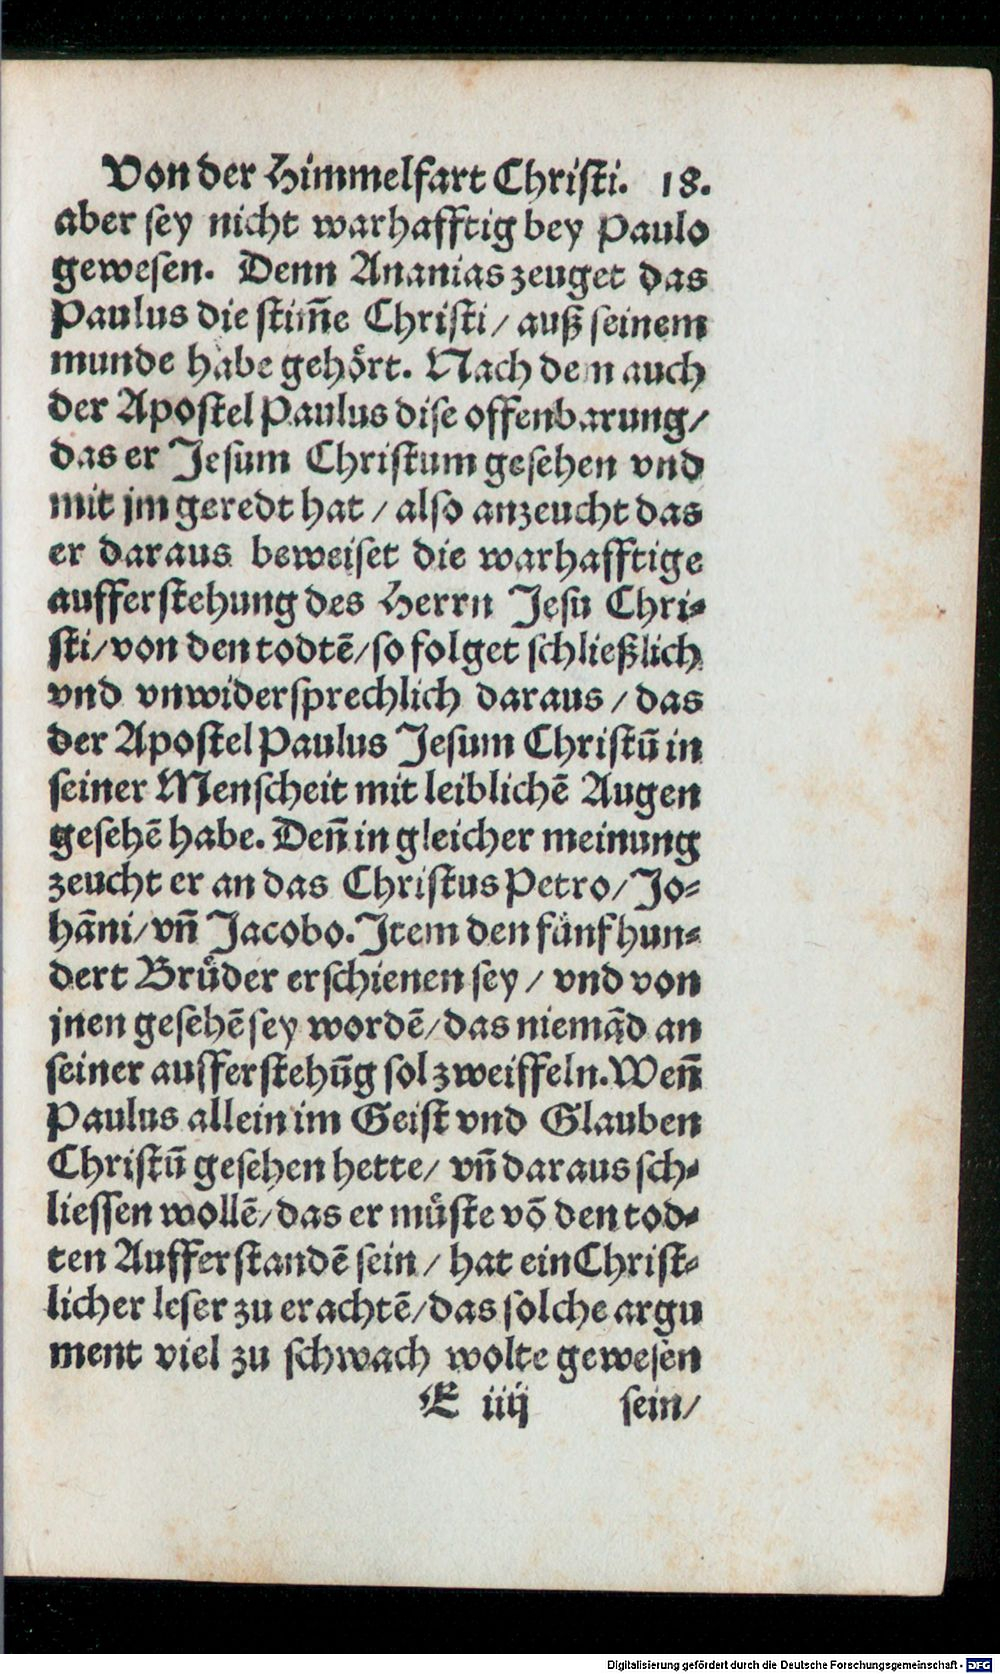 Von der Himmelfart Christi. 18.
aber sey nicht warhafftig bey Paulo
gewesen. Denn Ananias zeuget das
Paulus die stim̄e Christi / auß seinem
munde habe gehoͤrt. Nach dem auch
der Apostel Paulus dise offenbarung/
das er Jesum Christum gesehen vnd
mit jm geredt hat / also anzeucht das
er daraus beweiset die warhafftige
aufferstehung des Herrn Jesu Chri-
sti/von den todtē/so folget schließlich
vnd vnwidersprechlich daraus / das
der Apostel Paulus Jesum Christū in
seiner Menscheit mit leiblichē Augen
gesehē habe. Deñ in gleicher meinung
zeucht er an das Christus Petro/Jo-
hāni/vñ Jacobo. Item den fünfhun-
dert Bruͤder erschienen sey / vnd von
jnen gesehē sey wordē/das niemād an
seiner aufferstehūg sol zweiffeln. Weñ
Paulus allein im Geist vnd Glauben
Christū gesehen hette/ vñ daraus sch-
liessen wollē/das er muͤste vō den tod-
ten Aufferstandē sein / hat ein Christ-
licher leser zu erachtē/das solche argu
ment viel zu schwach wolte gewesen
E iiij sein/
Digitalisierung gefördert durch die Deutsche Forschungsgemeinschaft - DFG